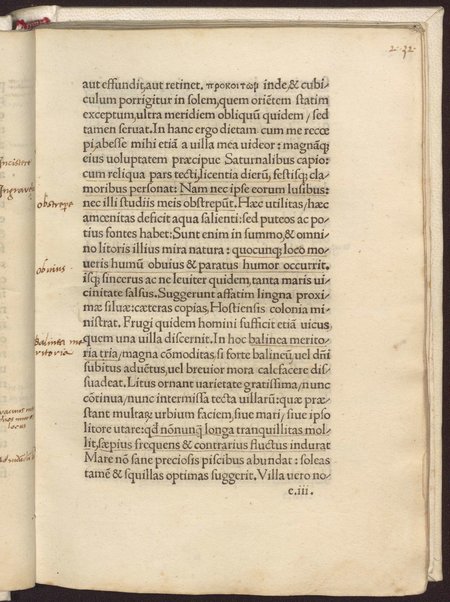 2.32
aut effundit,aut retinet. προκοιτωρ inde,& cubi
culum porrigitur in solem,quem oriẽtem statim
exceptum,ultra meridiem obliquũ quidem/sed
tamen seruat.In hanc ergo dietam cum me recœ
pi,abesse mihi etiã a uilla mea uideor: magnãq;
eius uoluptatem præcipue Saturnalibus capio:
cum reliqua pars tecti,licentia dierũ,festisq; cla
moribus personat: Nam nec ipse eorum lusibus:
nec illi studiis meis obstrepũt.Hæc utilitas/hæc
amœnitas deficit aqua salienti:sed puteos ac po
tius fontes habet:Sunt enim in summo,& omni
no litoris illius mira natura: quocunq; loco mo
ueris humũ obuius & paratus humor occurrit.
isq; sincerus ac ne leuiter quidem,tanta maris ui
cinitate salsus.Suggerunt affatim lingna proxi
mæ siluæ:cæteras copias,Hostiensis colonia mi
nistrat.Frugi quidem homini sufficit etiã uicus,
quem una uilla discernit.In hoc balinea merito
ria tria/magna cõmoditas,si forte balineũ,uel dñi
subitus aduẽtus,uel breuior mora calefacere dis
suadeat.Litus ornant uarietate gratissima/nunc
cõtinua/nunc intermissa tecta uillarũ:quæ præ
stant multaꝝ urbium faciem,siue mari/siue ipso
litore utare:qđ nõnunq̃ longa tranquillitas mol
lit,sæpius frequens & contrarius fluctus indurat
Mare nõ sane preciosis piscibus abundat: soleas
tamẽ & squillas optimas suggerit.Villa uero no/
c.iii.
Ingrave
obstrepe
obuius.
Balinea me
ritoria
locus